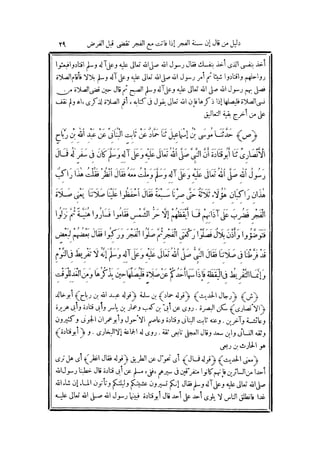 دليل من قال إن سنة الفجر إذا فاتت مع الفجر تقضى قبل الفرض ٢٩
أخذ بنفسى الذى أخذ بنفسك فقال رسول الله صلى الله تعالى عليه وعلى آله وسلم اقتادوا فبعثوا
رواحلهم واقتادوا شيئا ثم أمر رسول الله صلى الله تعالى عليه وعلى آله وسلم بلالا فأقام الصلاة
فصلى بهم رسول الله صلى الله تعالى عليه وعلى آله وسلم الصبح ثم قال حين قضى الصلاة من
نسى الصلاة فليصلها إذا ذكرها فإن الله تعالى يقول فى كتابه ، أقم الصلاة لذكرى ،اه ولم نقف
على من أخرج بقية التعاليق
﴿ص﴾ حَدَّثَنَا مُوسَى بْنُ إِسْمَاعِيلَ ثَنَا حَمَّادٌ عَنْ ثَابِتٍ الْبُنَانِىِّ عَنْ عَبْدِ اللهِ بْنِ رَبَاحٍ
الْأَنْصَارِىِّ ثَنَا أَبُو قَتَادَةَ أَنَّ النَّبِىَّ صَلَّى اللهُ تَعَالَى عَلَيْهِ وَعَلَى آلِهِ وَسَلَّمَ كَانَ فِى سَفَرٍ لَهُ فَمَالَ
رَسُولُ اللهِ صَلَّى اللهُ تَعَالَى عَلَيْهِ وَعَلَى آلِهِ وَسَلَّمَ وَمِلْتُ مَعَهُ فَقَالَ انْظُرْ فَقُلْتُ هَذَا رَاكِبٌ
هَذَانِ رَاكِبَانِ هَؤُلَاءِ ثَلَاثَةٌ حَتَّى صِرْنَا سَبْعَةً فَقَالَ احْفَظُوا عَلَيْنَا صَلَاتَنَا يَعْنِى صَلَاةَ
الْفَجْرِ فَضُرِبَ عَلَى آذَانِهِمْ فَمَا أَيْقَظَهُمْ إِلَّا حَرُّ الشَّمْسِ فَقَامُوا فَسَارُوا هُنَيَّةً ثُمَّ نَزَلُوا
فَتَوَضَّئُوا وَأَذَّنَ بِلَالٌ فَصَلَّوْا رَكْعَتَىِ الْفَجْرِ ثُمَّ صَلَّوُا الْفَجْرَ وَرَكِبُوا فَقَالَ بَعْضُهُمْ لِبَعْضٍ
قَدْ فَرَّطْنَا فِى صَلَاتِنَا فَقَالَ النَّبِىُّ صَلَّى اللهُ تَعَالَى عَلَيْهِ وَعَلَى آلِهِ وَسَلَّمَ إِنَّهُ لَا تَفْرِيطَ فِى النَّوْمِ
وَإِنَّمَا التَّفْرِيطُ فِى الْيَقَظَةِ فَإِذَا سَهَا أَحَدُكُمْ عَنْ صَلَاةٍ فَلْيُصَلِّهَا حِينَ يَذْكُرُهَا وَمِنَ الْغَدِ لِلْوَقْتِ
﴿ش﴾ ﴿رجال الحديث﴾ ﴿قوله حماد﴾ بن سلمة ﴿قوله عبد الله بن رباح﴾ أبو خالد
﴿الأنصارى﴾ سكن البصرة . روى عن أبىّ بن كعب وعمار بن ياسر وأبى قتادة وأبى هريرة
وعائشة وآخرين . وعنه ثابت البنانى وقتادة وعاصم الأحول وأبو عمران الجونى وكثيرون
وثقه النسائى وابن سعد وقال العجلى تابعى ثقة . روى له الجماعة إلا البخارى . و﴿أبو قتادة﴾
هو الحارث بن ربعى
﴿معنى الحديث﴾ ﴿قوله فمال﴾ أى تحوّل عن الطريق ﴿قوله فقال انظر﴾ أى هل ترى
أحدا من السائرين فإنهم كانوا متفرّقين فى سيرهم ،ففى، مسلم عن أبى قتادة قال خطبنا رسول الله
صلى الله تعالى عليه وعلى آله وسلم فقال إنكم تسيرون عشيتكم وليلتكم وتأتون الماء إن شاء الله
غدا فانطلق الناس لا يلوى أحد على أحد قال أبو قتادة فبينما رسول الله صلى الله تعالى عليه